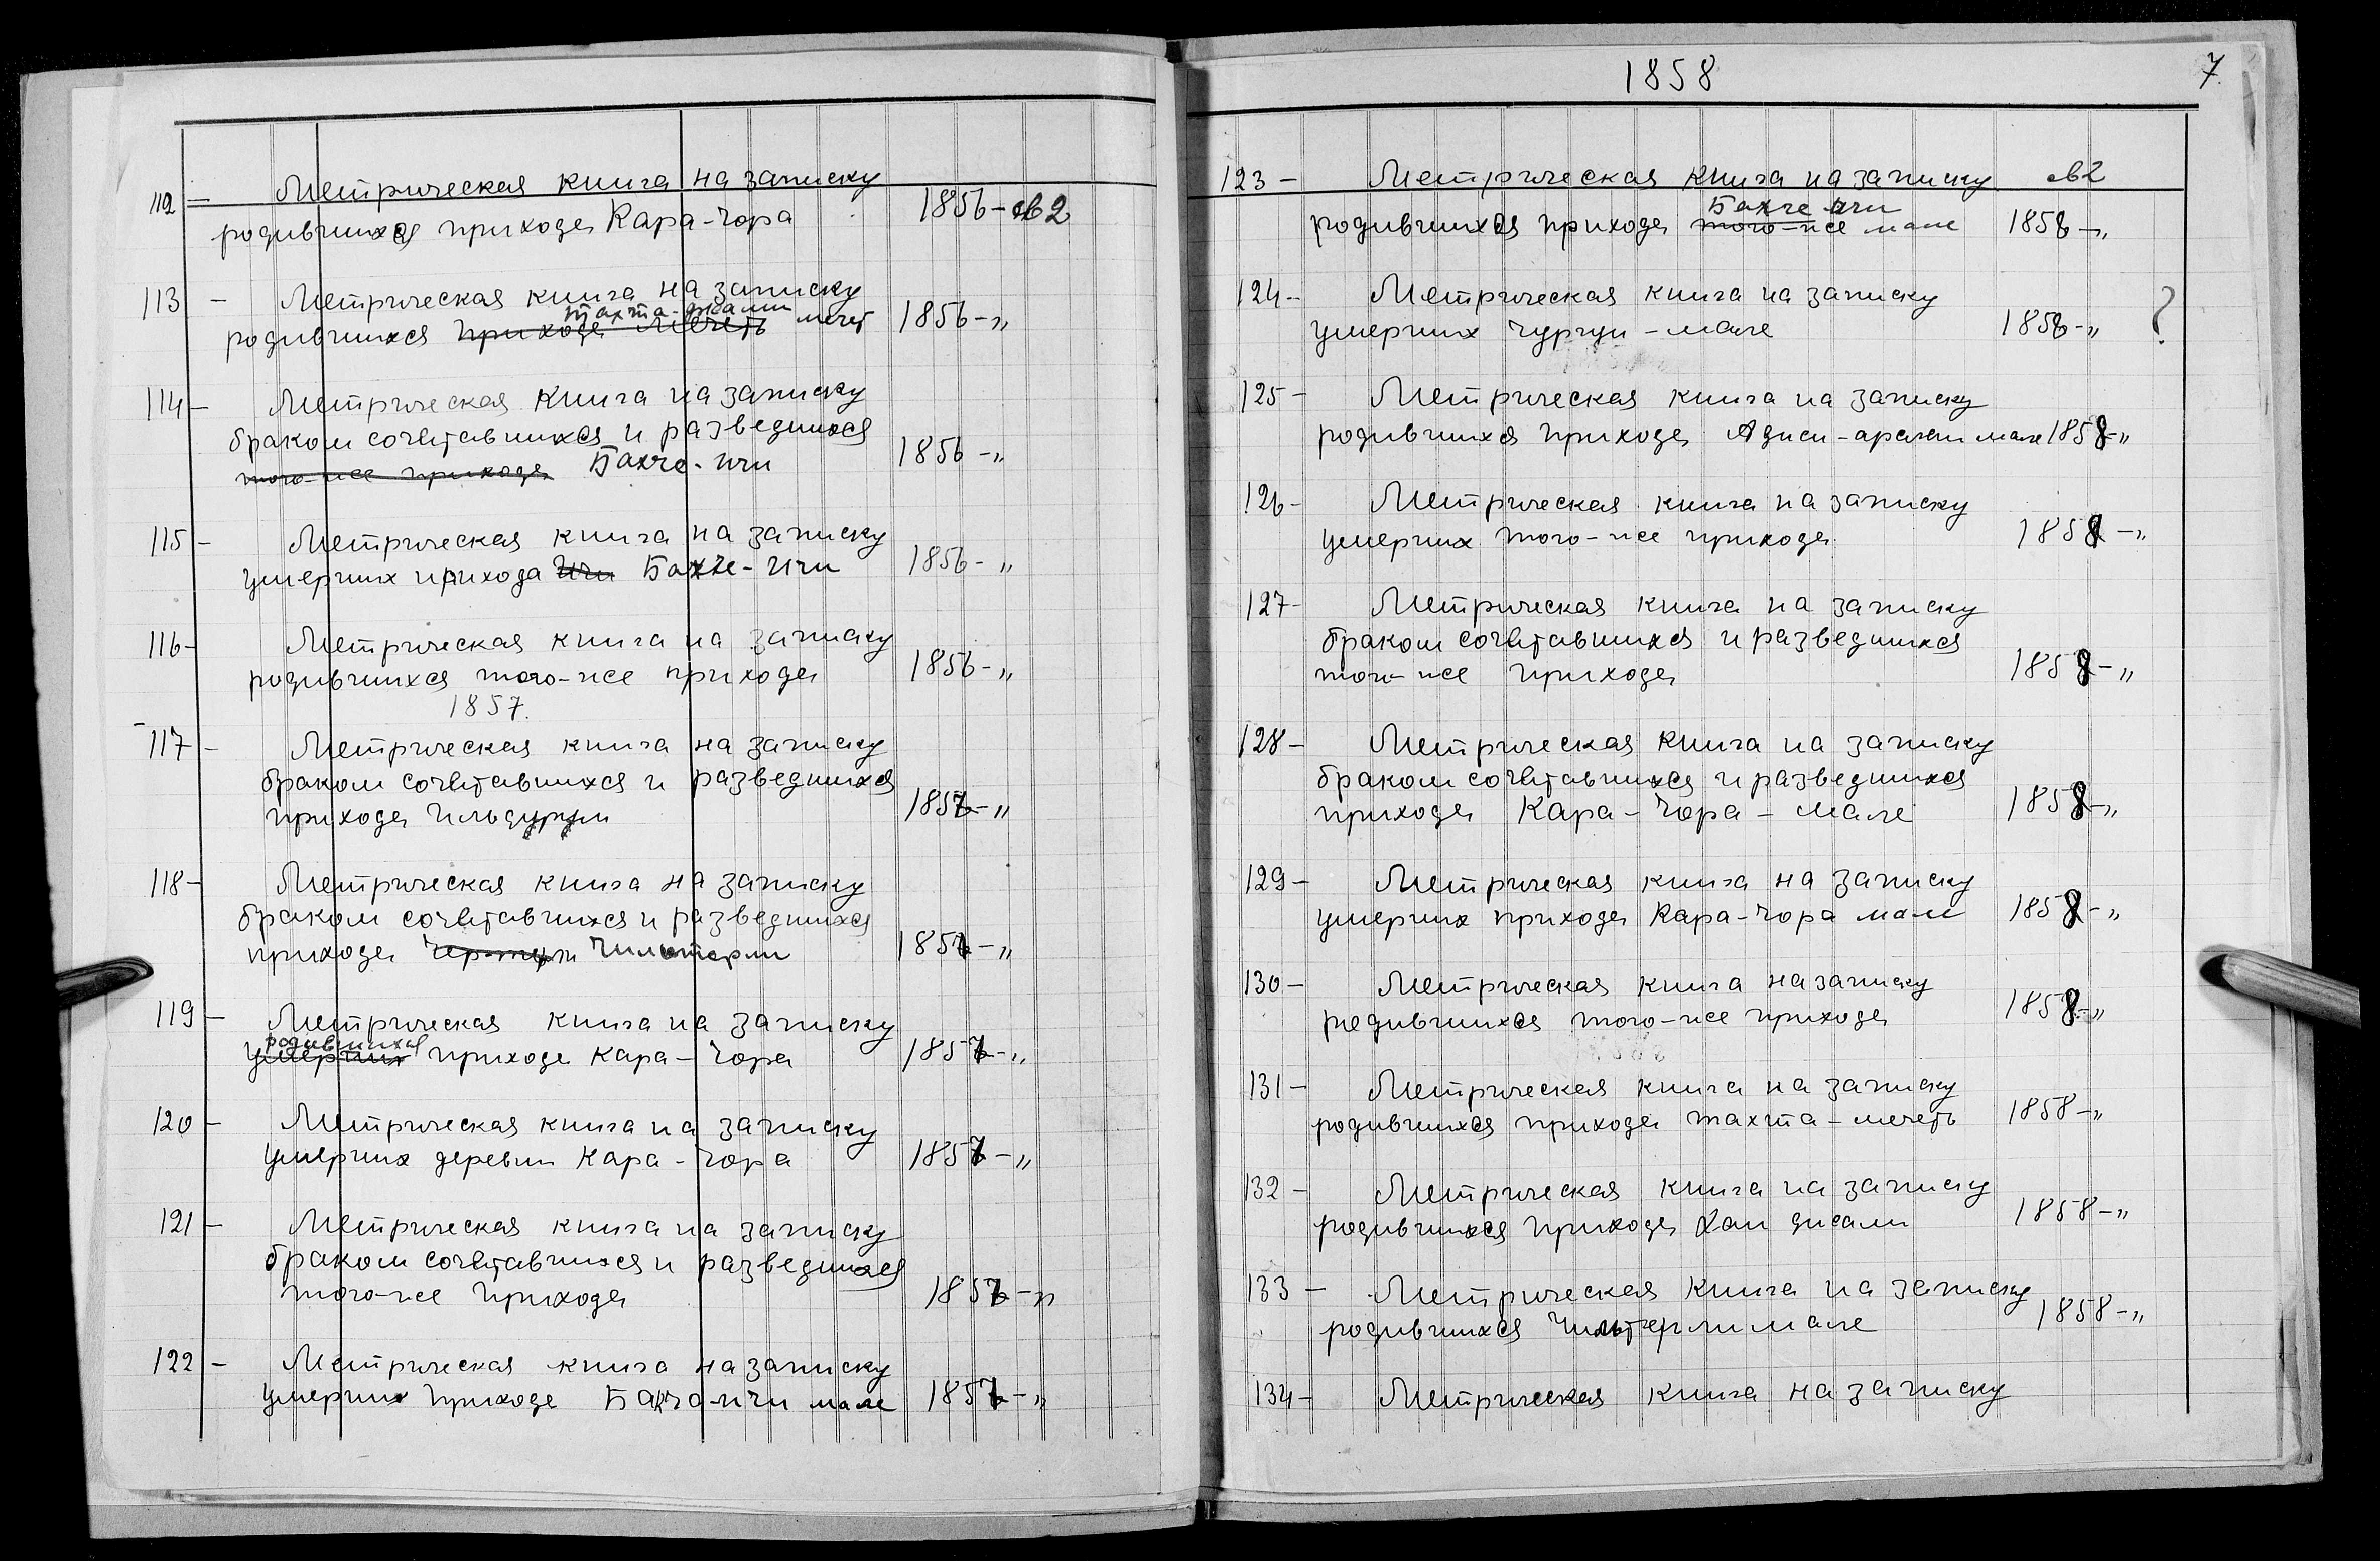 112 - Метрическая книга на записку
родившихся прихода Кара-Чора 1856 - св 2
113 - Метрическая книга на записку
тахта-джами
родившихся прихода мечеть мечет 1856 - „
114 - Метрическая книга на записку
браком сочетавшихся и разведшихся
того-же прихода Бахче-Ичи 1856 - „
115 - Метрическая книга на записку
умерших прихода Ичи Бахче-Ичи 1856 - „
116 - Метрическая книга на записку
родившихся того-же прихода 1856 - „
1857.
117 - Метрическая книга на записку
браком сочетавшихся и разведшихся
прихода 1857 - „
118 - Метрическая книга на записку
браком сочетавшихся и разведшихся
прихода Чильтерли 1857 - „
119 - Метрическая книга на записку
родившихся
умерших прихода Кара-Чора 1857 - „
120 - Метрическая книга на записку
умерших деревни Кара-Чора 1857 - „
121 - Метрическая книга на записку
браком сочетавшихся и разведшихся
того-же прихода 1857 - „
122 - Метрическая книга на записку
умерших прихода Бахча-ичи мале 1857 - „
1858
7.
123 - Метрическая книга на записку св 2
Бахче ичи
родившихся прихода того-же мале 1858 - „
124 - Метрическая книга на записку
умерших Чурчи-мале 1858 - „ ?
125 - Метрическая книга на записку
родившихся прихода мале 1858 - „
126 - Метрическая книга на записку
умерших того-же прихода 1858 - „
127 - Метрическая книга на записку
браком сочетавшихся и разведшихся
того-же прихода 1858 - „
128 - Метрическая книга на записку
браком сочетавшихся и разведшихся
прихода Кара-Чора-мале 1858 - „
129 - Метрическая книга на записку
умерших прихода Кара-Чора мале 1858 - „
130 - Метрическая книга на записку
родившихся того-же прихода 1858 - „
131 - Метрическая книга на записку
родившихся прихода тахта-мечеть 1858 - „
132 - Метрическая книга на записку
родившихся прихода Хан джами 1858 - „
133 - Метрическая книга на записку
родившихся Чильтерли мале 1858 - „
134 - Метрическая книга на записку